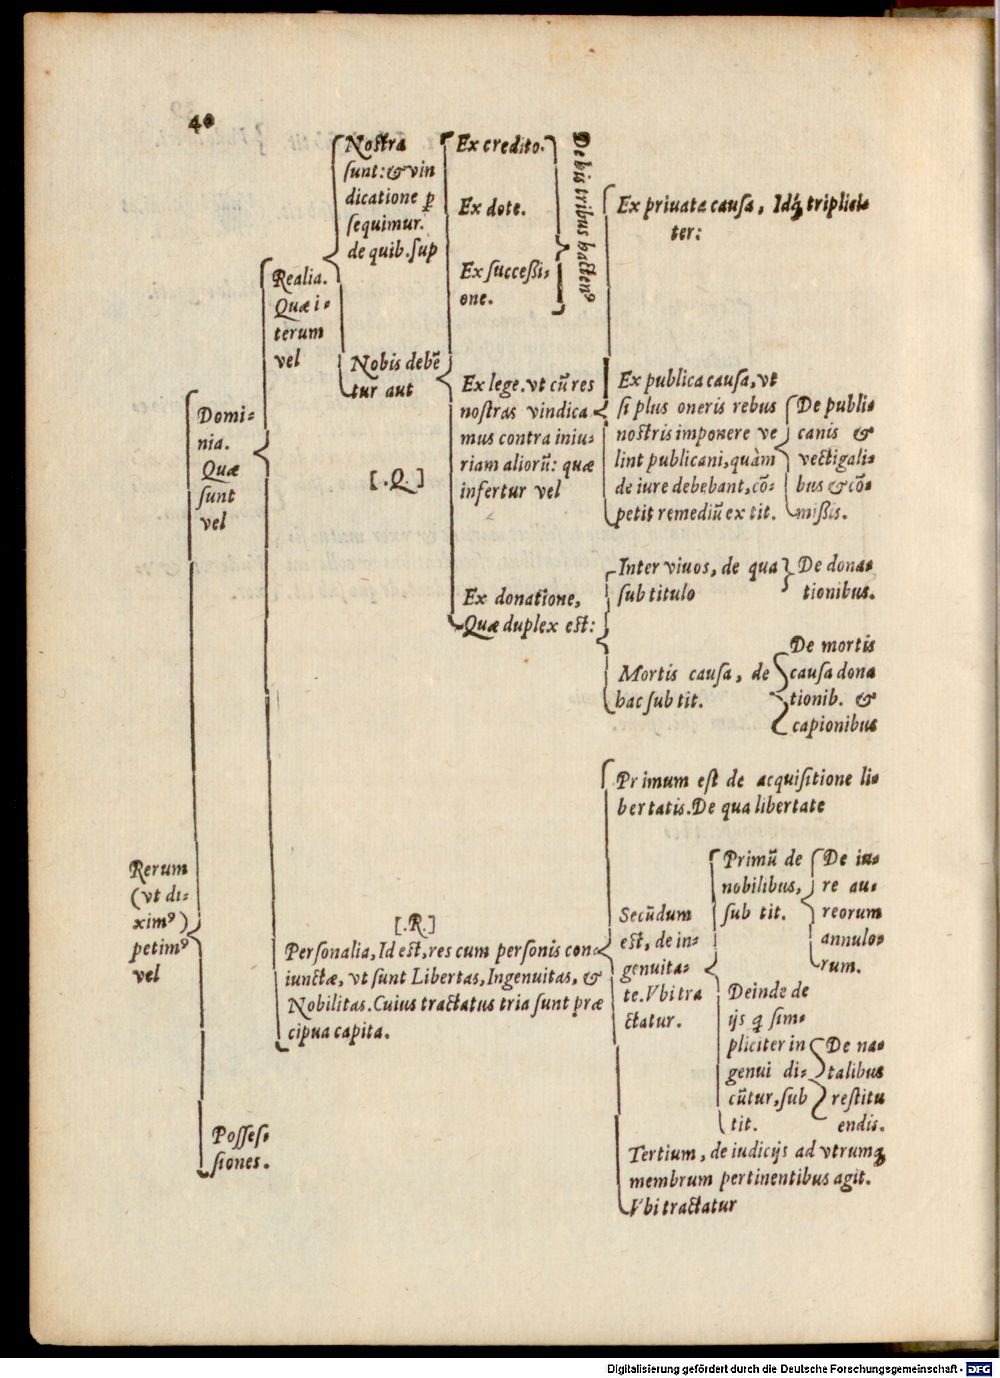 40
Rerum
(vt di-
xim⁹)
petim⁹
vel
Domi-
nia.
Quæ
sunt
vel
Realia.
Quæ i-
terum
vel
Nostra
sunt: & vin
dicatione ꝑ
sequimur.
de quib. sup
Nobis debẽ
tur aut
[.Q.]
Ex credito.
Ex dote.
Ex successi-
one.
De his tribus hacten⁹
Ex lege. vt cũ res
nostras vindica
mus contra iniu-
riam aliorũ: quæ
infertur vel
Ex priuata causa, Idq́ triplici-
ter:
Ex publica causa, vt
si plus oneris rebus
nostris imponere ve
lint publicani, quàm
de iure debebant, cõ-
petit remediũ ex tit.
De publi-
canis &
vectigali-
bus & cõ-
missis.
Ex donatione,
Quæ duplex est:
Inter viuos, de qua
sub titulo
De dona-
tionibus.
Mortis causa, de
hac sub tit.
De mortis
causa dona
tionib. &
capionibus
[.R.]
Personalia, Id est, res cum personis con-
iunctæ, vt sunt Libertas, Ingenuitas, &
Nobilitas. Cuius tractatus tria sunt præ
cipua capita.
Primum est de acquisitione li-
bertatis. De qua libertate
Secũdum
est, de in-
genuita-
te. Vbi tra
ctatur.
Primũ de
nobilibus,
sub tit.
De iu-
re au-
reorum
annulo-
rum.
Deinde de
ijs q̃ sim-
pliciter in
genui di-
cũtur, sub
tit.
De na-
talibus
restitu
endis.
Tertium, de iudicijs ad vtrumq́
membrum pertinentibus agit.
Vbi tractatur
Posses-
siones.
Digitalisierung gefördert durch die Deutsche Forschungsgemeinschaft - DFG